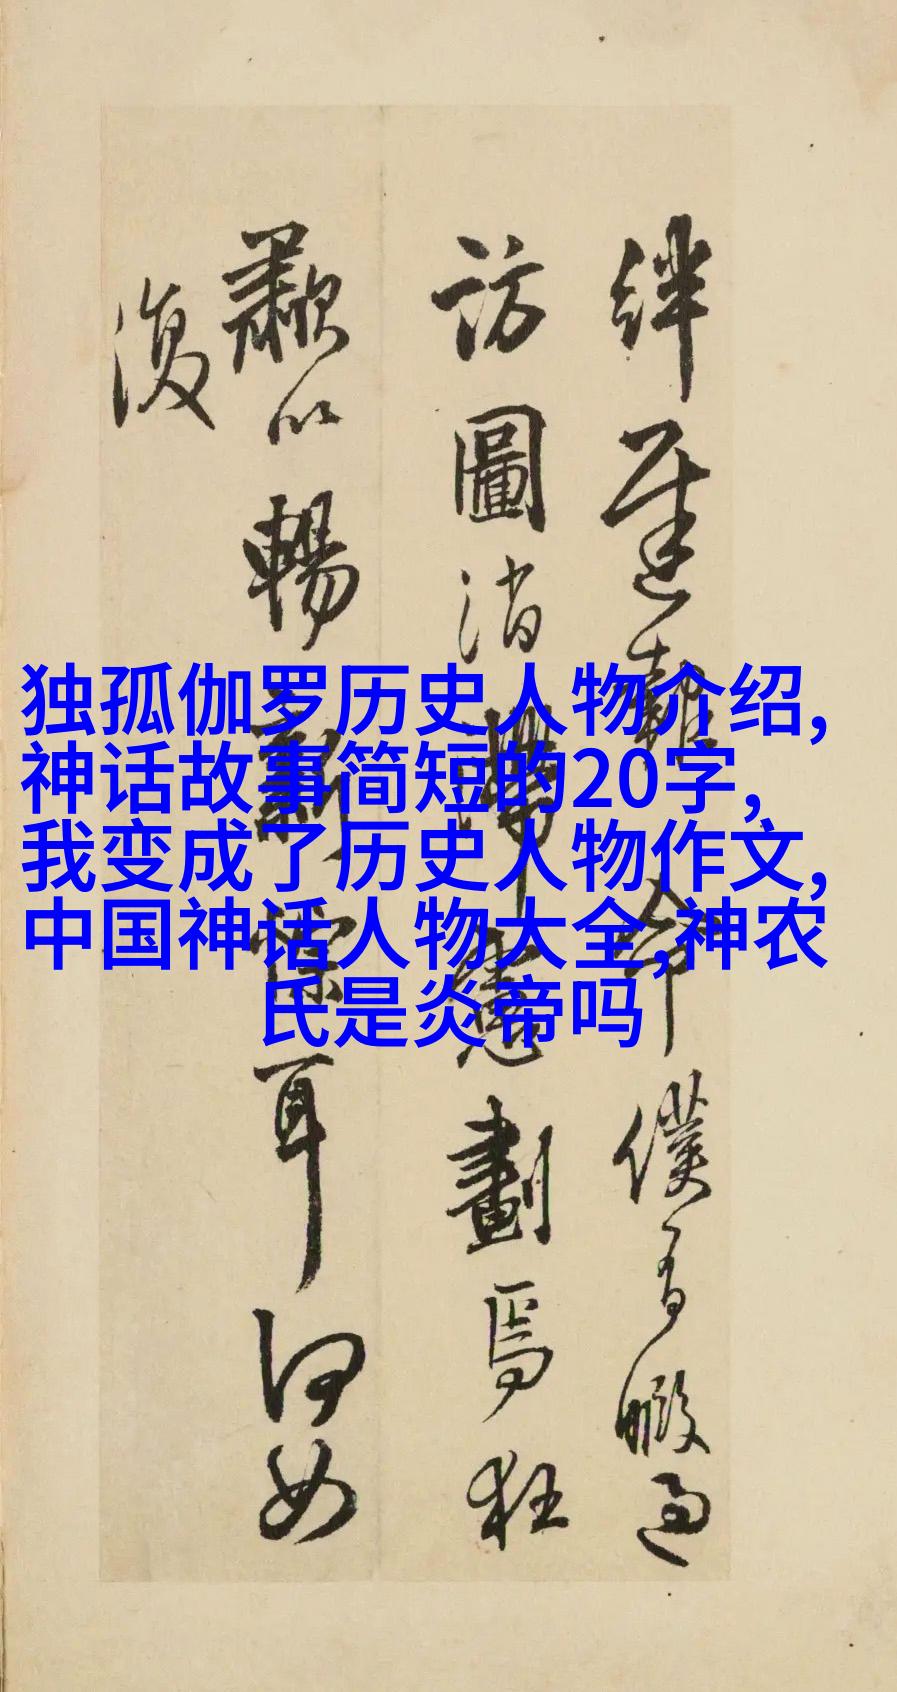 絆 僕 有 暇 過
訪 圖 消 劃 焉 狂
歗 以 暢 耳 何 如
復
独孤伽罗历史人物介绍,
神话故事简短的20字,
我变成了历史人物作文,
中国神话人物大全,神农
氏是炎帝吗